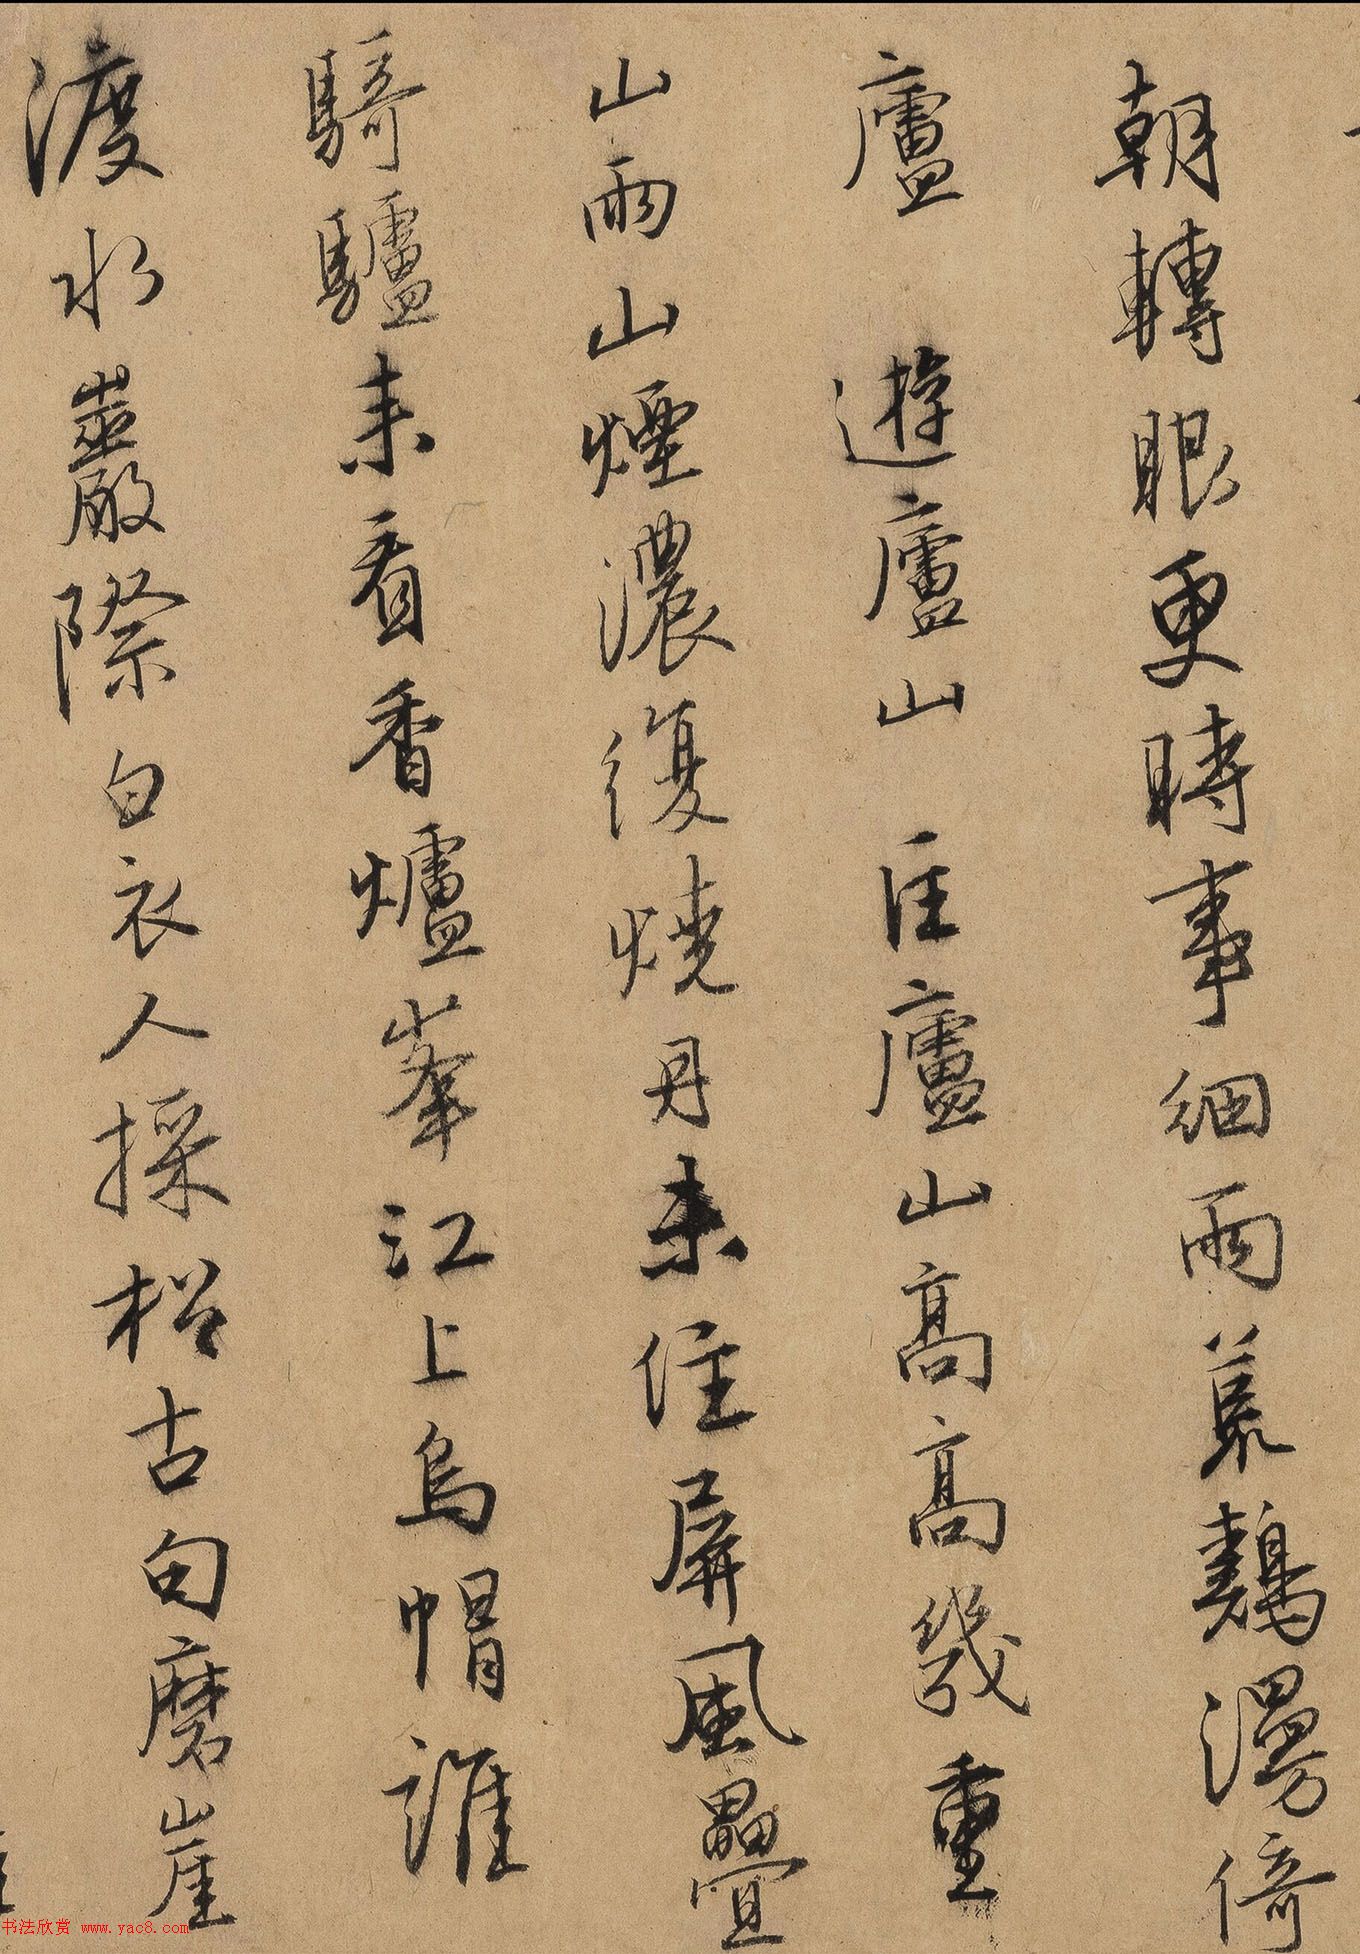 朝轉眼更時事細雨荒鷄漫倚
廬 遊廬山 住廬山高高幾重
山雨山煙濃復燒丹未住屏風疊
騎驢未看香爐峯江上烏帽誰
渡水巖際白衣人採松古句磨崖
书法欣赏 www.yac8.com